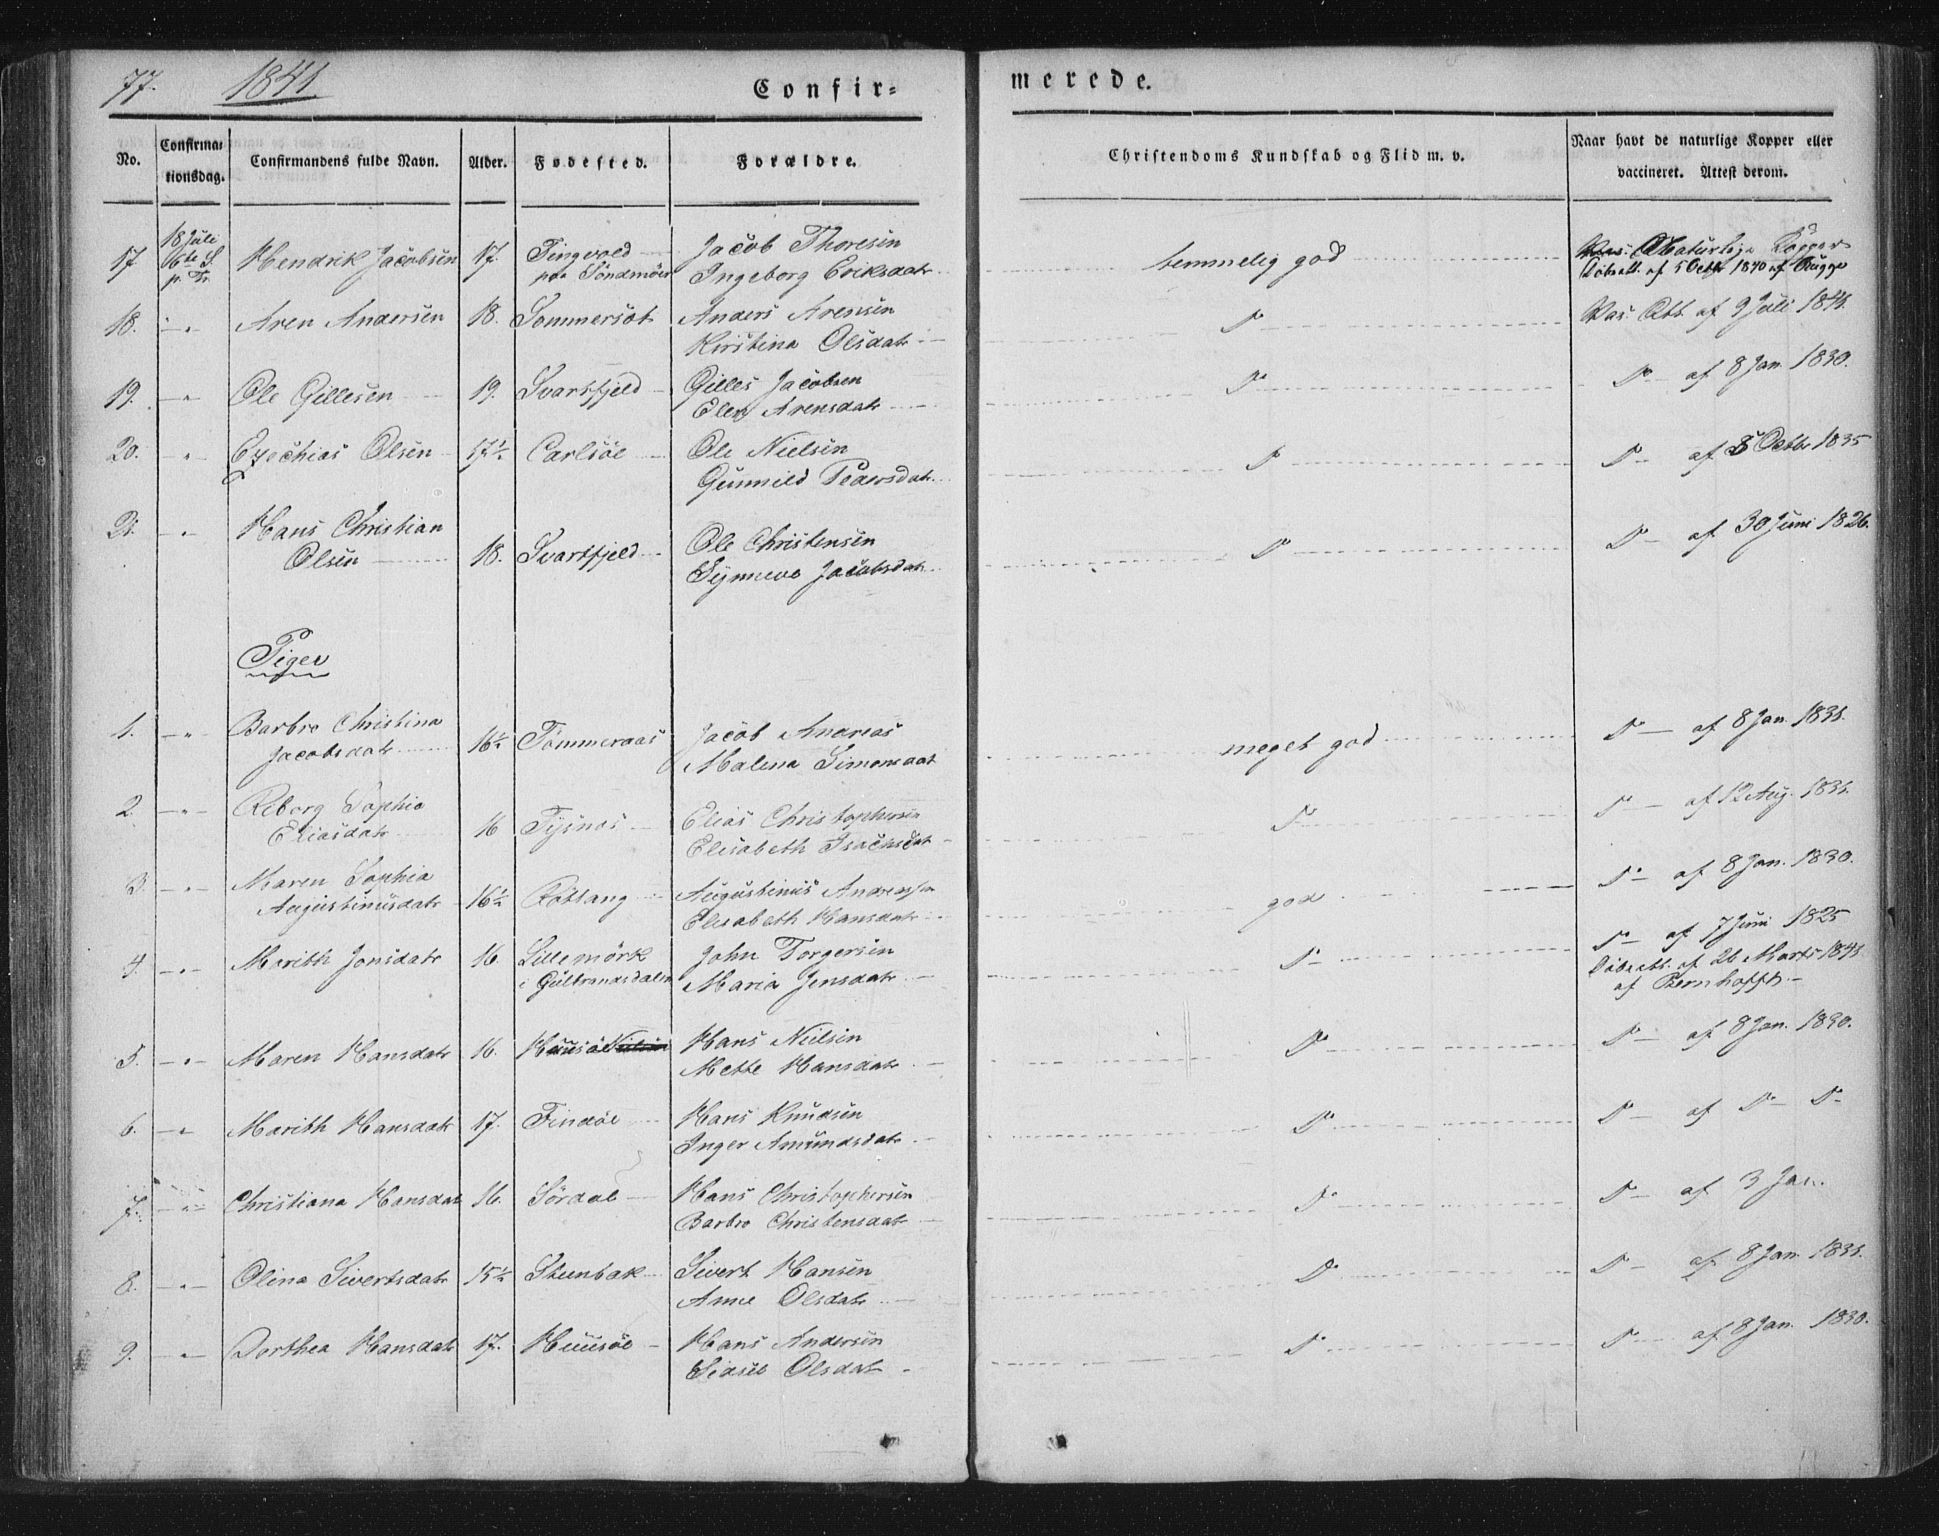 77. 1841 Confir= merede.
No. Confirma= tionsdag. Confirmandens fulde Navn. Alder. Fødested. Forældre. Christendoms Kundskab og Flid m. v. Naar havt de naturlige Kopper eller vaccineret. Attest derom.
17 18 Juli 6te S. p. Tr. Hendrik Jacobsen 17. Tingvold paa Söndmöer Jacob Thoresen Ingeborg Eriksdatr temmelig god Naturlige Kopper Döbsatt. af 5 Octbr 1840 af Bugge
18. - " Aren Andersen 18. Sommersöt Anders Arensen Kirstina Olsdatr D Vac. Att. af 9 Juli 1841.
19. - " - Ole Gillesen 19. Svartfjeld Gilles Jacobsen Elen Arensdatr D D - af 8 Jan. 1830.
20. " - Ezechias Olsen 17½ Carlsöe Ole Nielsen Gunnild Pedersdatr D D - af 8 Octbr 1835
21. - " - Hans Christian Olsen 18. Svartfjeld Ole Christensen Synneve Jacobsdatr D D - af 30 Juni 1826.
Piger
1. - " - Barbro Christina Jacobsdatr 16½ Tömmeraas Jacob Andreas Malena Simonsdat meget god D - af 8 Jan. 1831.
2. - " - Reberg Sophie Eliasdatr 16 Tysnas Elias Christophersen Elisabeth Isachsdat D D - af 12 Aug. 1831.
3. - " - Maren Sophia Augustinusdatr 16½ Rötsang Augustinus Andreassen Elisabeth Hansdatr god D - af 8 Jan. 1830.
4. - " - Marith Jonsdatr 16. Lillemörk i Gulbrandsdalen John Torgersen Maria Jensdatr D - D - af 7 Juni 1825 Döbsatt. af 26 Marts 1841 af Bernhofft. -
5. - " - Maren Hansdatr 16. Huusöe Hans Nielsen Mette Hansdatr D D - af 8 Jan. 1830.
6. - " Marith Hansdatr 17. Tindöe Hans Knudsen Inger Amundsdatr D D - af D - D -
7. - " - Christiana Hansdatr 16. Sördal Hans Christophersen Barbro Christensdatr D D - af 3 Jan.
8. - " - Olina Sivertsdatr 15½ Steenbak Sivert Hansen Anne Olsdatr D D - af 8 Jan 1831.
9. - " - Dorthea Hansdatr 17. Huusöe - Hans Andersen Sidsel Olsdatr D D - af 8 Jan. 1830.